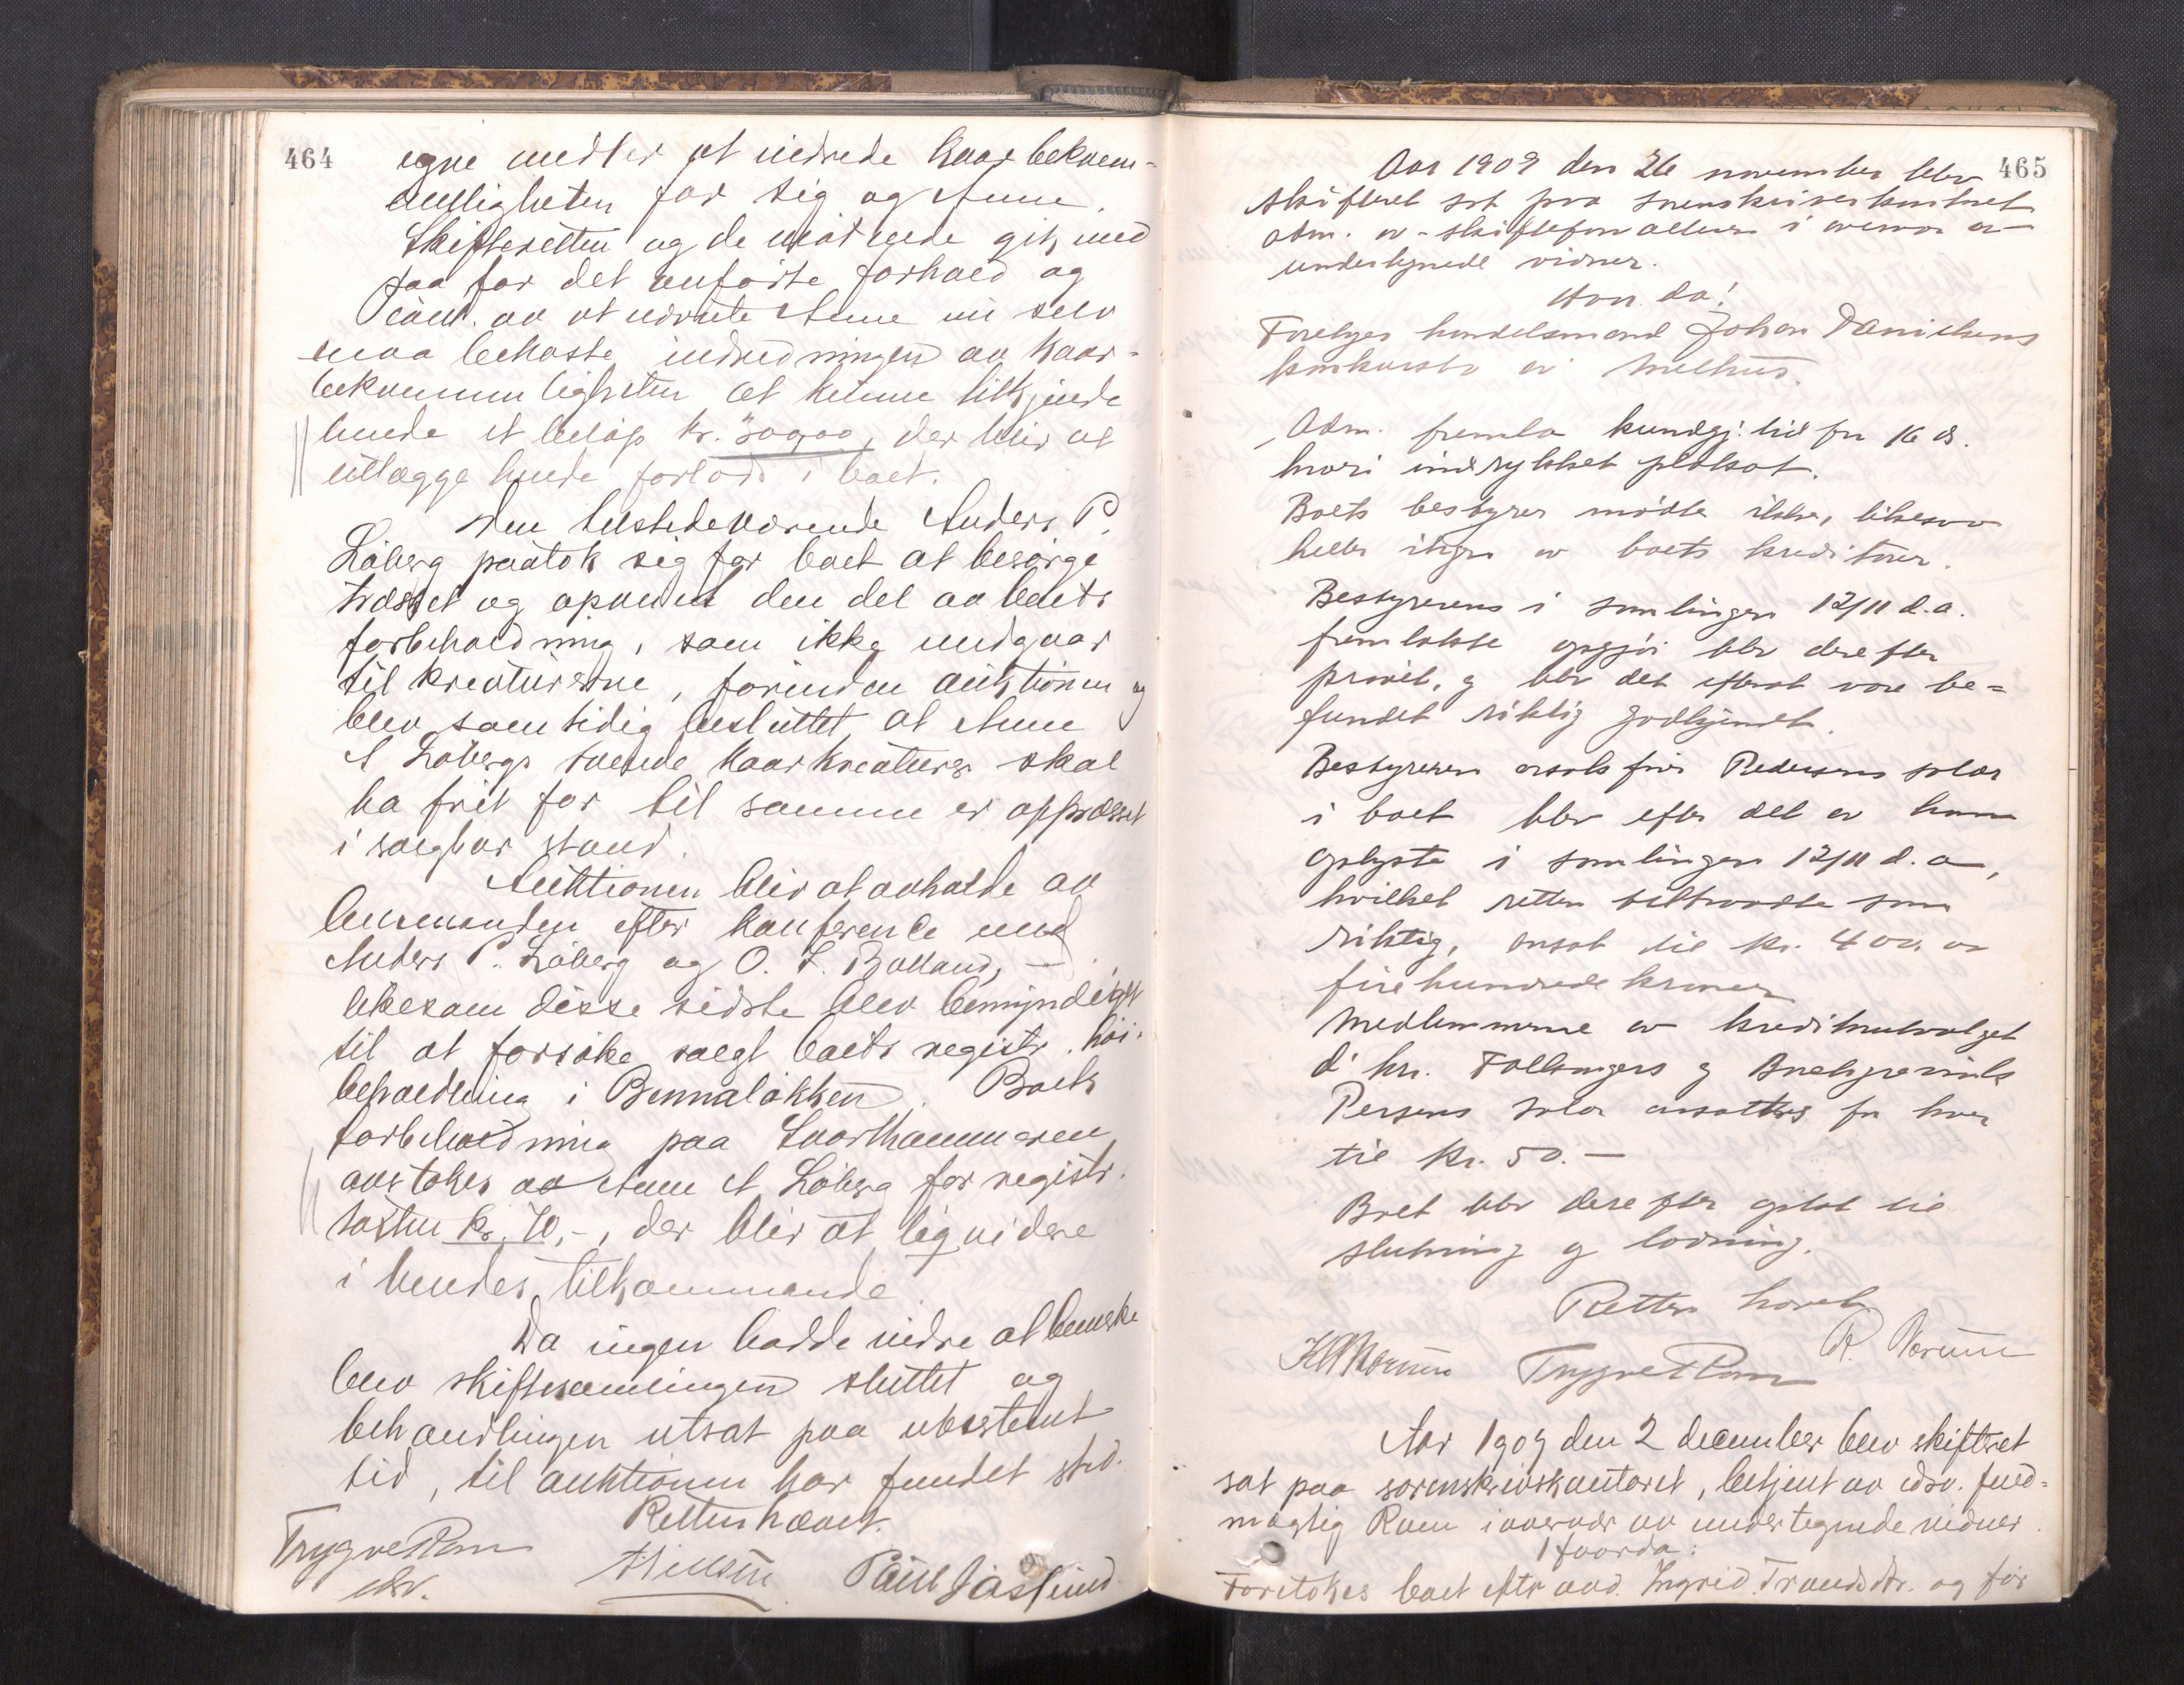 464
egne midler at indrede kaarbekvem-
meligheten for sig og Anne.
Skifteretten og de møtende gik ind
paa for det anførte forhold og
av at nævnte Anne nu selv
maa bekoste indredningen av kaar-
bekvemmeligheten at kunne tilkjende
hende et beløp kr. 300,00, der blir at
utlægge hende forlods i boet.
Den tilstedeværende Anders P.
Løberg paatok sig for boet at besørge
trøsket og opmaalt den del av boets
forbeholdning, som ikke medgaar
til kreaturerne, forinden auktionen og
blev samtidig besluttet at Anne
A Løbergs kaarkreaturer skal
ha frit for til samme er opptrøsket
i salgbar stand.
Auktionen blir at avholde av
lensmanden efter konference med
Anders P. Løberg og O. L. Bolland, —
likesom disse sidste blev bemyndiget
til at forsøke solgt boets registr. høi-
beholdning i Bennaløkken. Boets
forbeholdning paa Svorkhammeren
overtokes av Anne A Løberg for registr.
taxten kr. 70,-, der blir at liqvidere
i hendes tilkommende.
Da ingen hadde videre at bemerke
blev skiftesamlingen sluttet og
behandlingen utsat paa ubestemt
tid, til auktionen har fundet sted.
Retten hævet.
Trygve Ram
edsv.
Paul Jaslund
465
Aar 1909 den 26 november blev
skifteret sat paa sorenskriverkontoret
adm. av skifteforvalteren i overvær av
undertegnede vidner.
Hvorda!
Foretoges handelsmand Johan Danielsens
konkursbo av Melhus.
Adm. fremla kundgj. tid for 16 ds.
hvori indrykket plakat.
Boets bestyrer møtte ikke, likesaa
heller ingen av boets kreditorer.
Bestyrerens i samlingen 12/11 d.a.
fremlakte opgjør blev derefter
prøvet, og blev det efterat være be-
fundet riktig godkjendt.
Bestyreren Pedersens salær
i boet blev efter det av ham
oplyste i samlingen 12/11 d.a.,
hvilket retten tiltraadte som
riktig, ansat til kr. 400. —
firehundrede kroner
Medlemmerne av kreditorutvalget
d'hrr. og
Persens salær ansattes for hver
til kr. 50.—
Boet blev derefter optat til
slutning og lodning.
Retten hævet
Trygve Ram
Aar 1909 den 2 december blev skifteret
sat paa sorenskriverkontoret, betjent av edsv. fuld-
mægtig Ram i overvær av undertegnede vidner.
Hvorda:
Foretokes boet efter avd. Ingrid Trondsdtr. og før